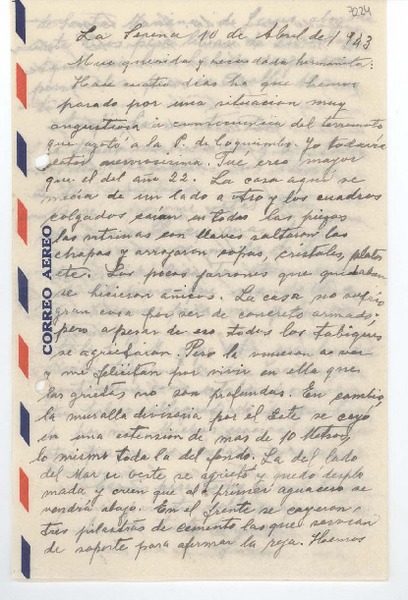 7024
La Serena 10 de Abril de 1943
Muy querida y recordada hermanita:
Hace cuatro dias ha que hemos
pasado por una situacion muy
angustiosa a consecuencia del terremoto
que azotó a la P. de Coquimbo. Yo todavía
estoy nerviosisima. Fue creo mayor
que el del año 22. La casa aqui se
mecia de un lado a otro y los cuadros
colgados caian en todas las piezas
las vitrinas con llaves saltaron las
chapas y arrojaron copas, cristales, platos
etc. Los pocos jarrones que quedaban
se hicieron añicos. La casa no sufrió
gran cosa por ser de concreto armado;
pero apesar de eso todos los tabiques
se agrietaron. Pero la vinieron a ver
y me felicitan por vivir en ella que
las grietas no son profundas. En cambio,
la muralla divisoria por el Este se cayó
en una extension de mas de 10 Metros,
lo mismo toda la del fondo. La del lado
del Mar u oeste se agrietó y quedó desplo
mada y creen que al primer aguacero se
vendrá abajo. En el frente se cayeron
tres pilastras de cemento las que servian
de soporte para afirmar la reja. Hemos
CORREO AEREO